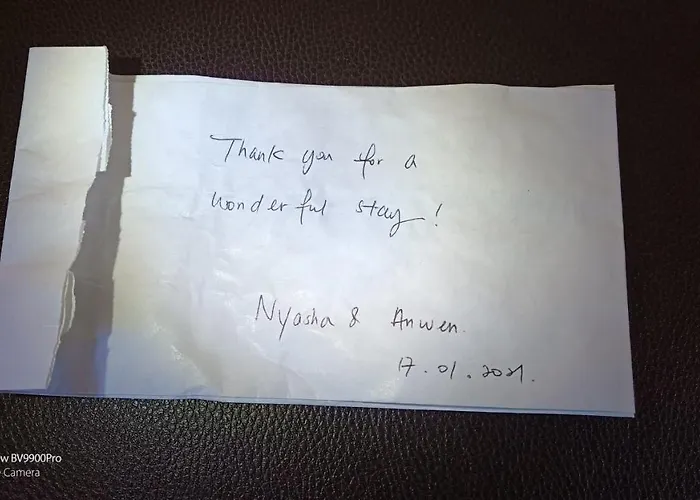 Thank you for a
wonderful stay!
Nyasha & Anwen.
17.01.2021.
w BV9900Pro
Camera